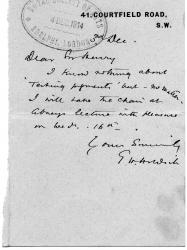 41, COURTFIELD ROAD,
S.W.
Dec.
Dear Sir Henry
I know nothing about
"Testing Pigments" but - no matter
I will take the Chair at
Abney's lecture with pleasure
on Wed. 16th.
Yours Sincerely
T H Holdich